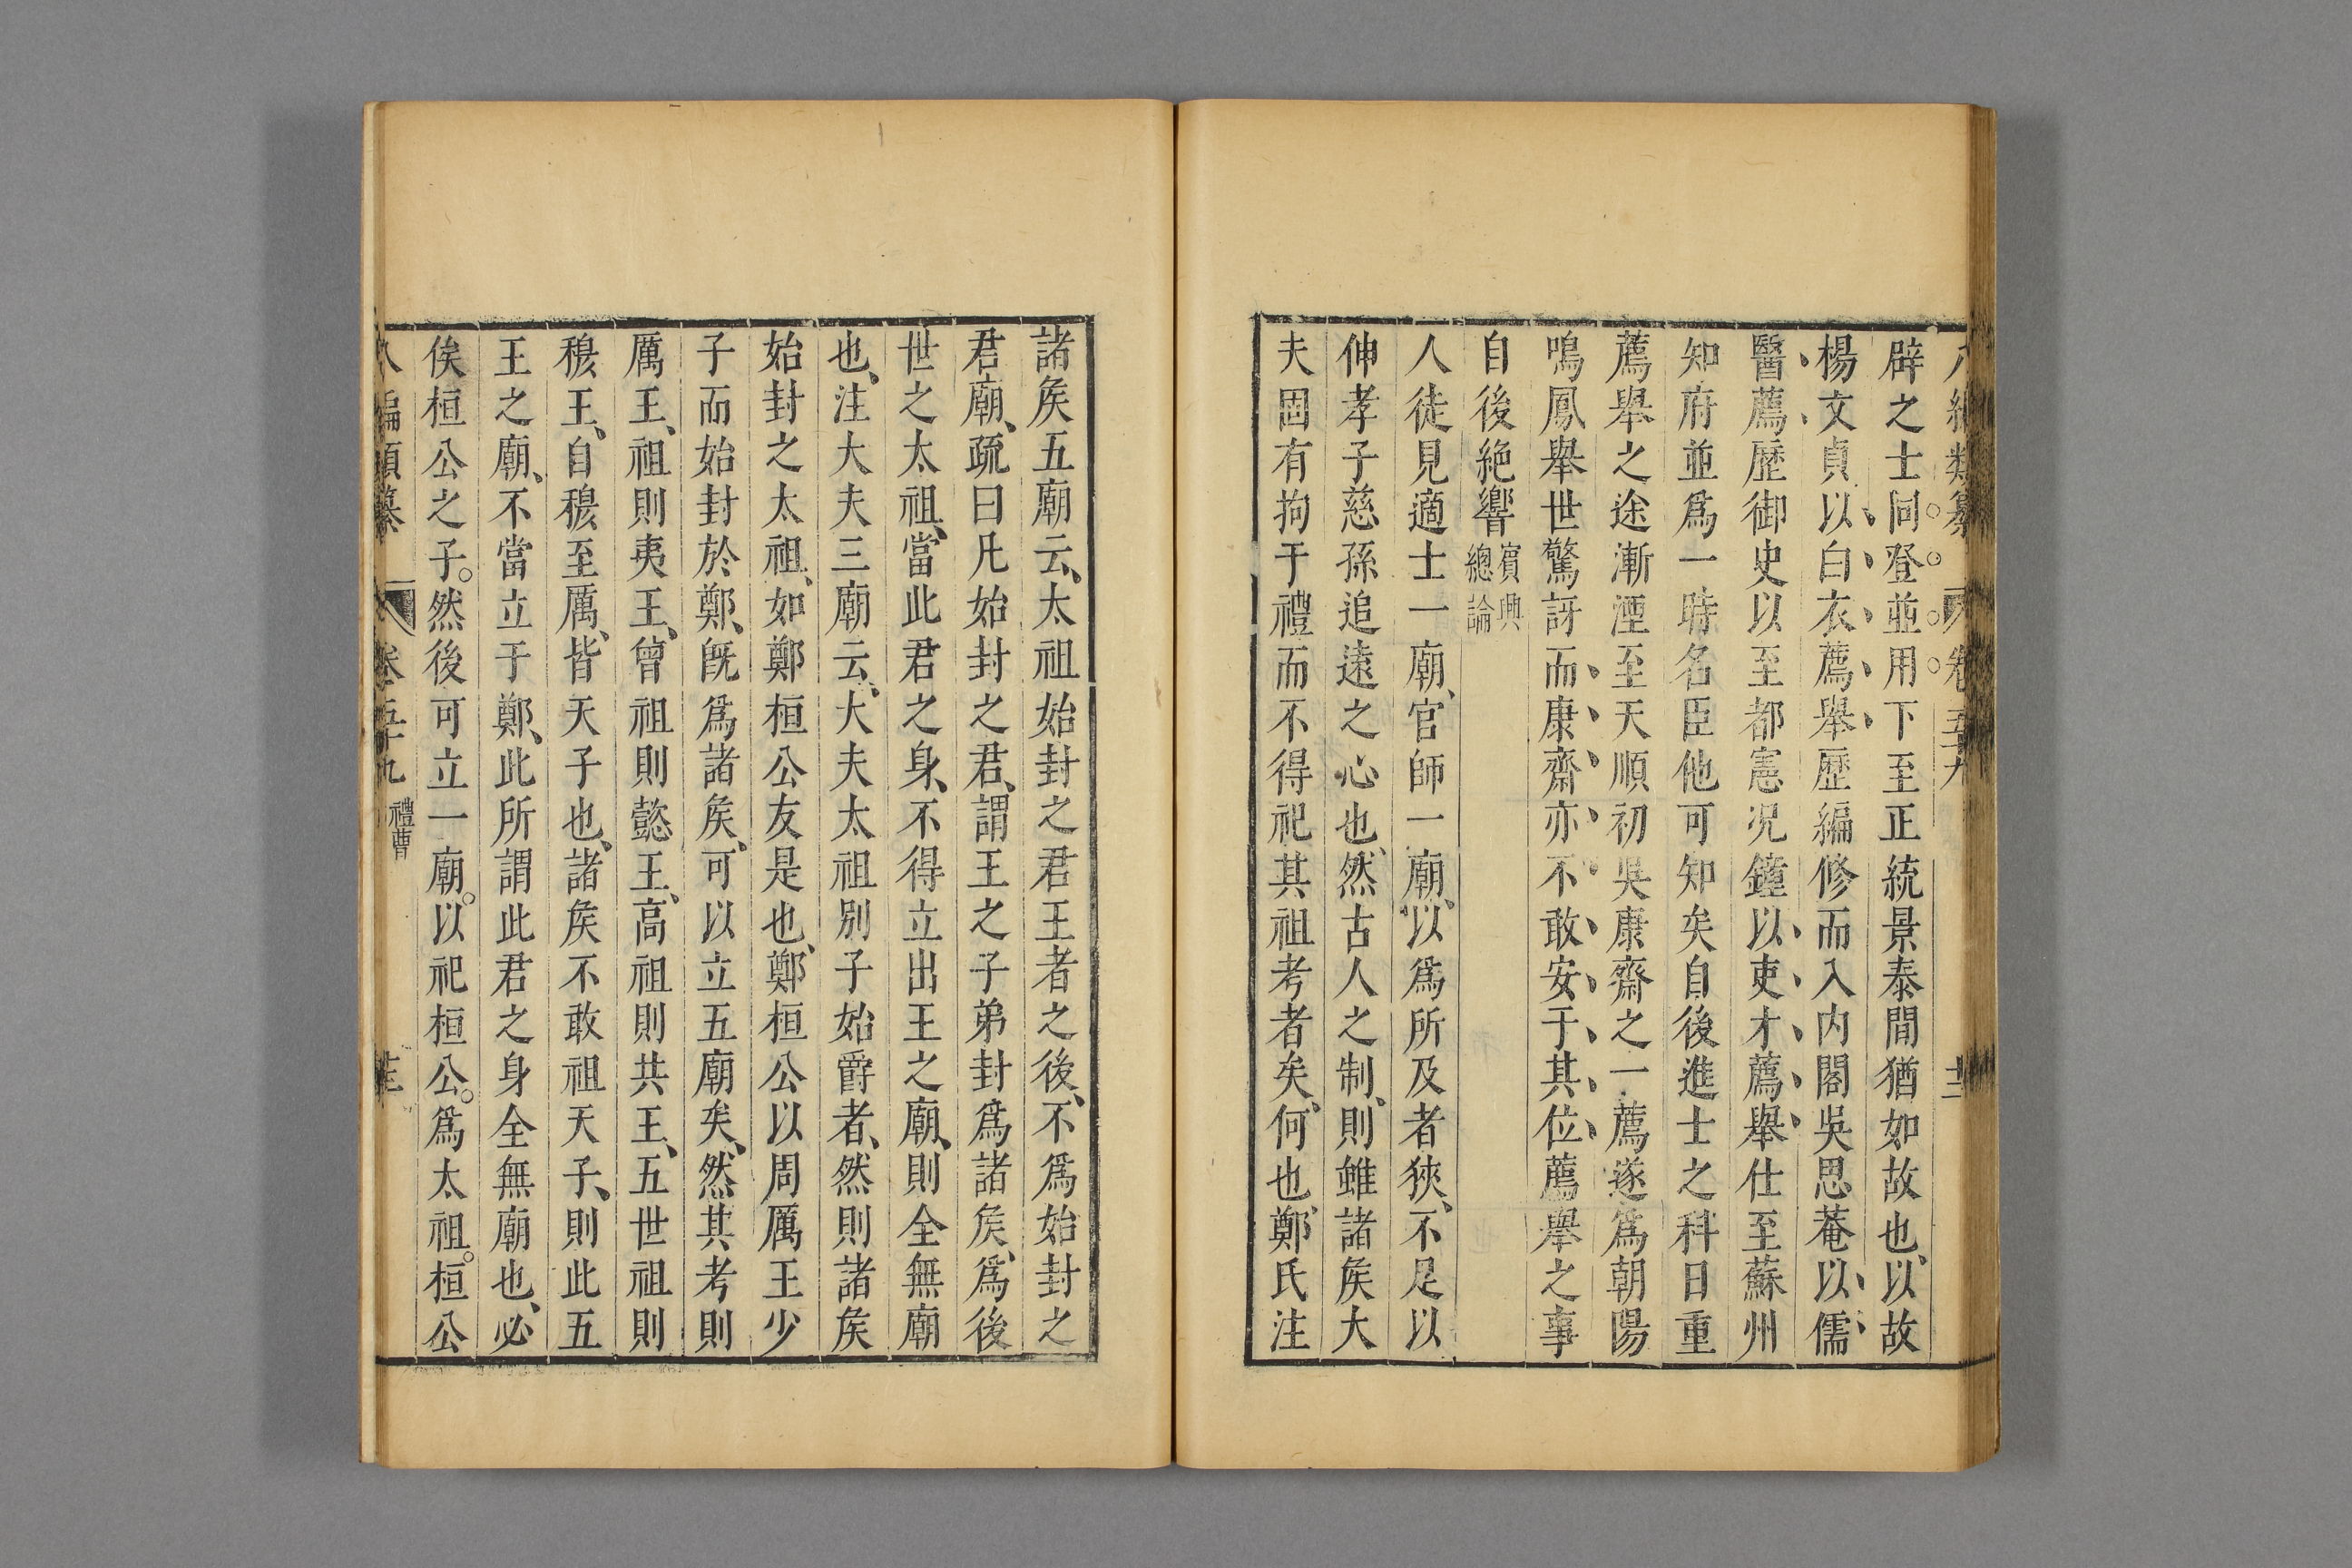 八編類纂 卷五十九 廿二
辟之士同登並用下至正統景泰間猶如故也以故
楊文貞以白衣薦舉歷編修而入内閣吳思菴以儒
醫薦歷御史以至都憲况鐘以吏才薦舉仕至蘇州
知府並爲一時名臣他可知矣自後進士之科日重
薦舉之途漸湮至天順初吳康齋之一薦遂爲朝陽
鳴鳳舉世驚訝而康齋亦不敢安于其位薦舉之事
自後絶響賓興總論
人徒見適士一廟官師一廟以爲所及者狹不足以
伸孝子慈孫追遠之心也然古人之制則雖諸矦大
夫固有拘于禮而不得祀其祖考者矣何也鄭氏注
諸矦五廟云太祖始封之君王者之後不爲始封之
君廟疏曰凡始封之君謂王之子弟封爲諸矦爲後
世之太祖當此君之身不得立出王之廟則全無廟
也注大夫三廟云大夫太祖別子始爵者然則諸矦
始封之太祖如鄭桓公友是也鄭桓公以周厲王少
子而始封於鄭旣爲諸矦可以立五廟矣然其考則
厲王祖則夷王曾祖則懿王高祖則共王五世祖則
穆王自穆至厲皆天子也諸矦不敢祖天子則此五
王之廟不當立于鄭此所謂此君之身全無廟也必
俟桓公之子。然後可立一廟。以祀桓公。爲太祖。桓公
八編類纂 卷五十九 禮曹 廿三